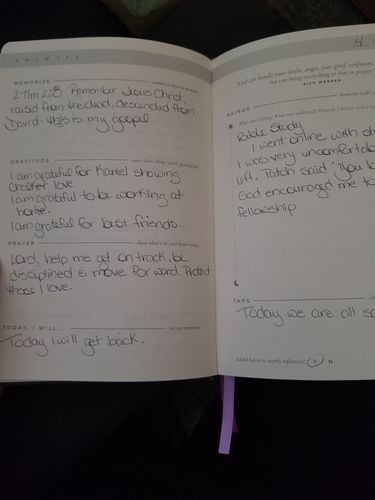 MEMORIZE
2 Tim 2:8 Remember Jesus Christ,
raised from the dead, descended from
David - this is my gospel.
GRATITUDE
I am grateful for Kamel showing
another love.
I am grateful to be working at
home.
I am grateful for best friends.
PRAYER
share what's on your heart today
Lord, help me get on track, be
disciplined & move for word. Protect
those I love.
TODAY, I WILL...
set an intention
Today I will get back.
"God can handle your doubt, anger, fear, grief, confusion,
You can bring everything to him in prayer."
RICK WARREN
KAIROS
Bible Study
I went online with st
I was very uncomfortab
left. Patch said "you l
God encouraged me to
fellowship
TAPS
Today we are all so
Added kairos to weekly reflection? Y N